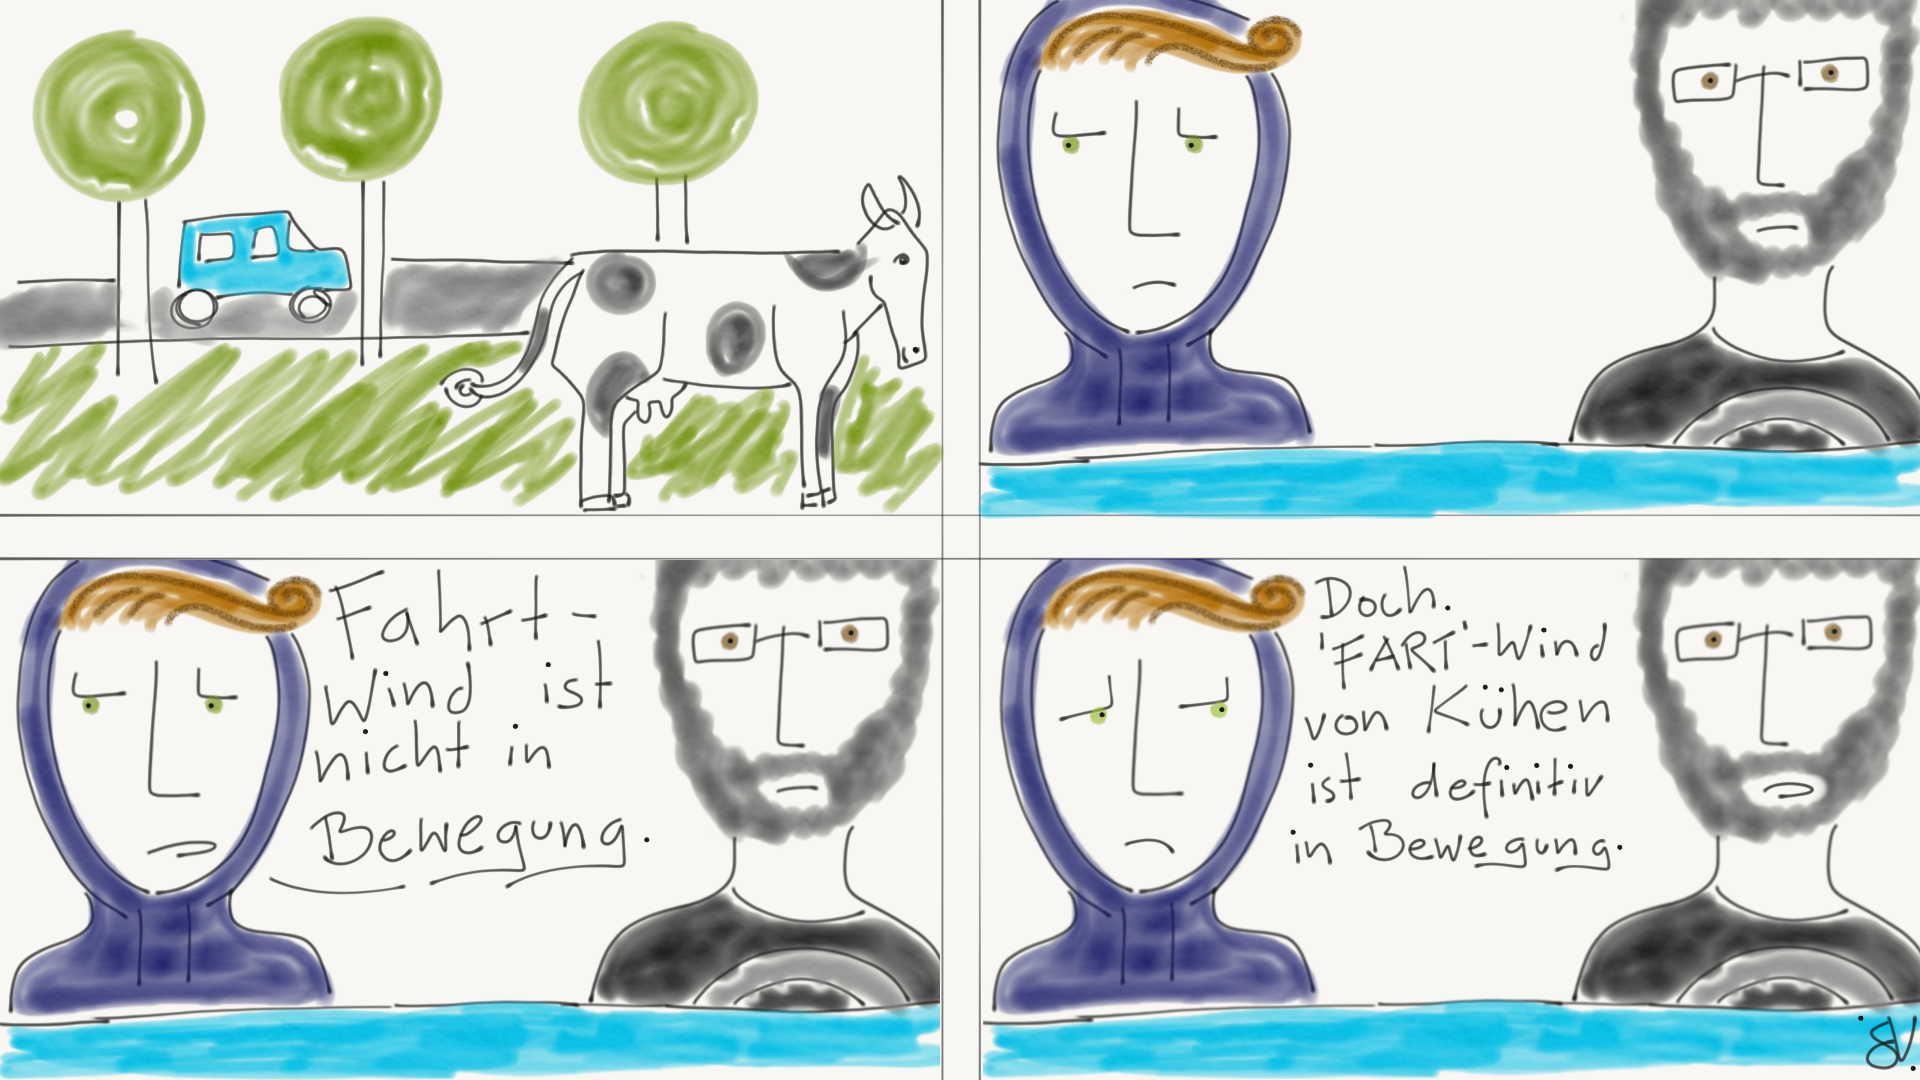 Fahrt-
Wind ist
nicht in
Bewegung.
Doch.
'FART'-Wind
von Kühen
ist definitiv
in Bewegung.